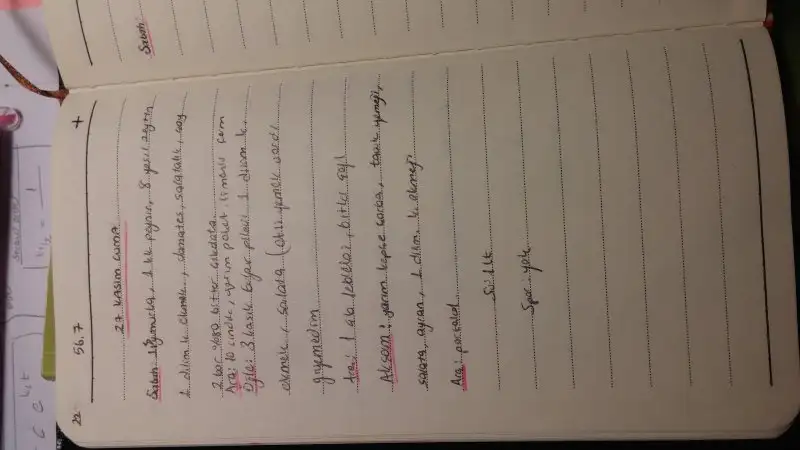 22 56.7 +
27 KASIM CUMA
Sabah: 1 yumurta, 1 kk peynir, 8 yeşil zeytin
1 dilim k. ekmek, domates, salatalık, çay
2 kare %80 bitter çikolata
Ara: 10 çindik, yarım paket
Öğle: 3 kaşık bulgur pilavı 1 dilim k.
ekmek, salata (etli yemek vardı
yiyemedim
Ara: 1 avb leblebi, bitki çayı
Akşam: yarım kepçe çorba, tavuk yemeği,
salata, ayran, 1 dilim k. ekmeği
Ara: portakal
Su: 2 lt
Spor: yok
Sabah: